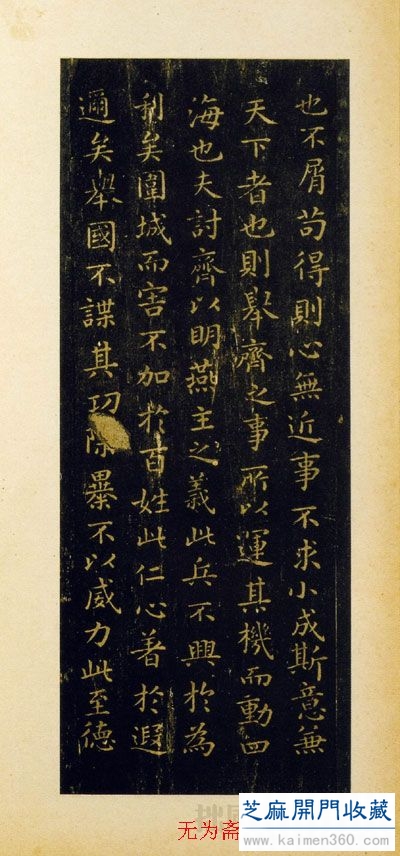 也不屑苟得則心無近事不求小成斯意兼
天下者也則舉齊之事所以運其機而動四
海也夫討齊以明燕主之義此兵不興於為
利矣圍城而害不加於百姓此仁心著於遐
邇矣舉國不謀其功除暴不以威力此至德
无为斋
芝麻開門收藏
www.kaimen360.com